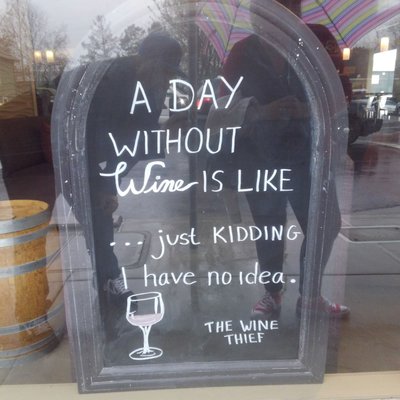 A DAY
WITHOUT
Wine IS LIKE
... just KIDDING
I have no idea.
THE WINE
THIEF